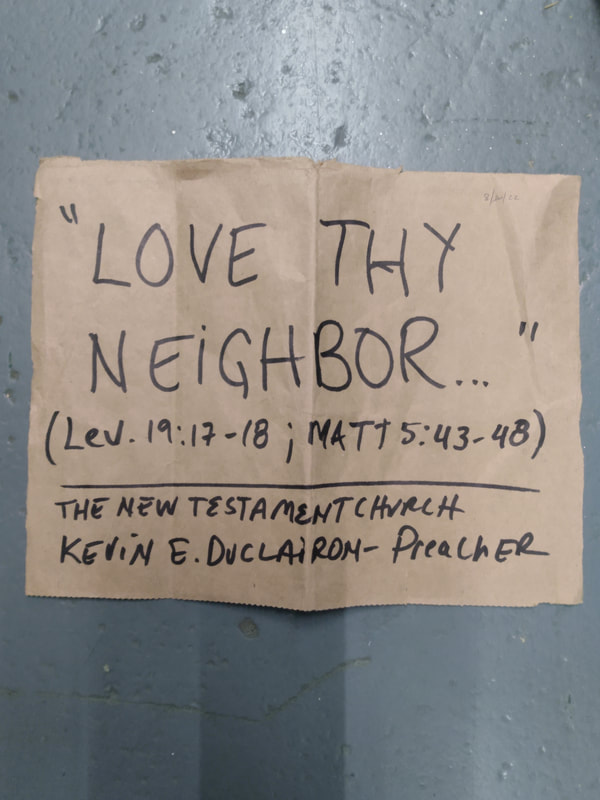 "LOVE THY
NEiGHBOR..."
(Lev. 19:17-18 ; MATT 5:43-48)
THE NEW TESTAMENT CHURCH
KEViN E. DUCLAiRON- PreachER